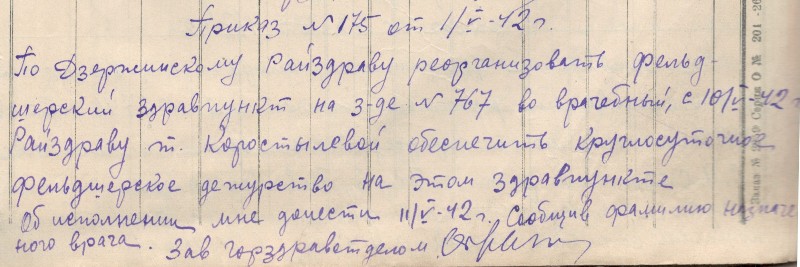 Приказ № 175 от 1/V-42 г.
По Дзержинскому Райздраву реорганизовать фельд-
шерский здравпункт на з-де № 767 во врачебный, с 10/V-42 г
Райздраву т. Коростылевой обеспечить круглосуточное
фельдшерское дежурство на этом здравпункте
Об исполнении мне донести 11/V-42 г. Сообщив фамилию назначе
ного врача. Зав горздравотделом
Заказ № Серия О № 201-26